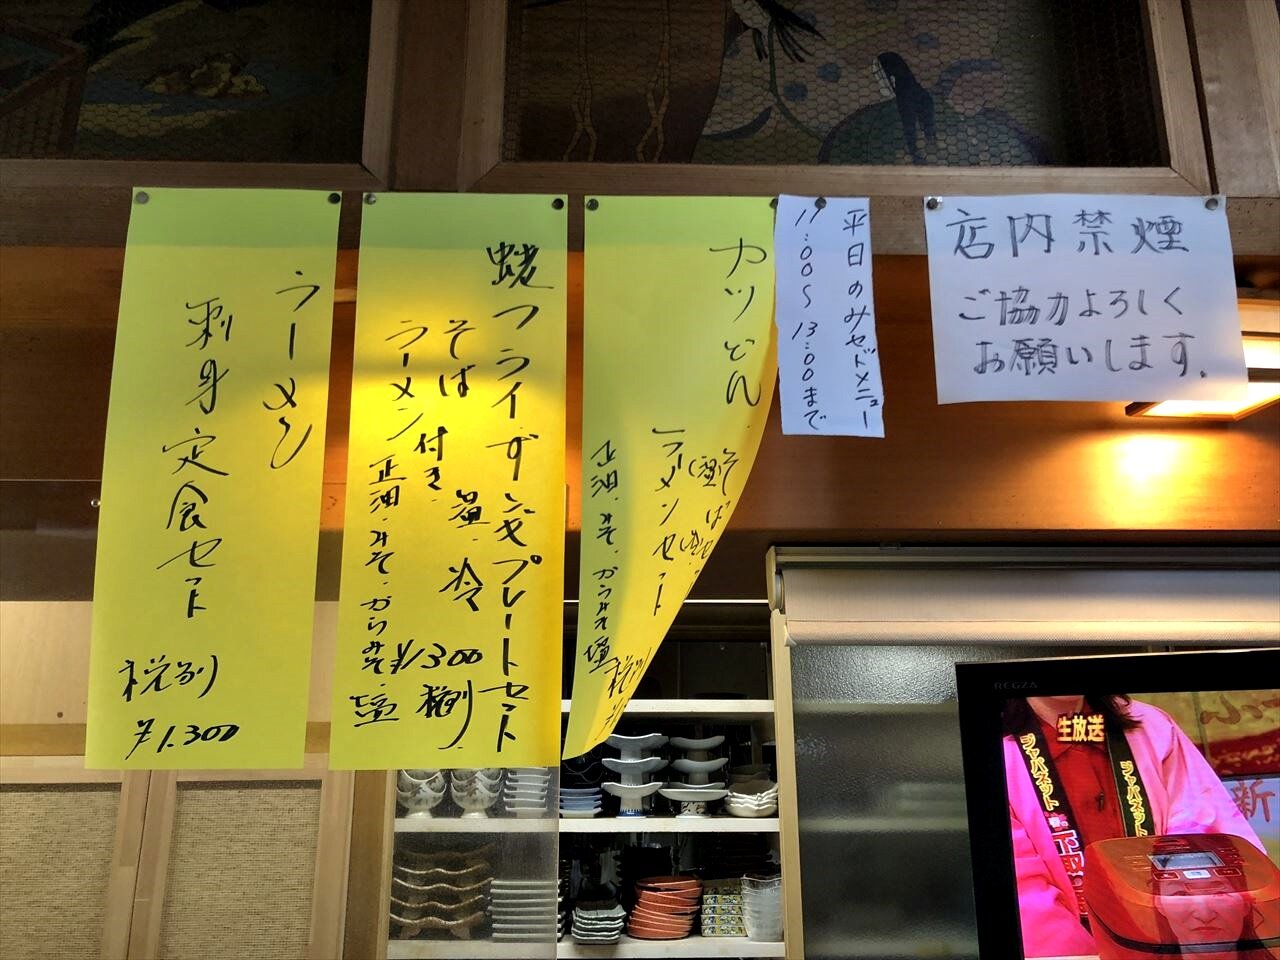 店内禁煙
ご協力よろしく
お願いします.
平日のみセドメニュー
11:00〜13:00まで
カツどん
そば
ラーメンセット
正油.みそ.からみそ
塩
税別
フライ
プレートセット
そば付き.温.冷
ラーメン正油.みそ.からみそ.
塩
¥1300
税別
ラーメン
刺身定食セット
税別
¥1.300
REGZA
生放送
ジャパネット
ジャパネット
新